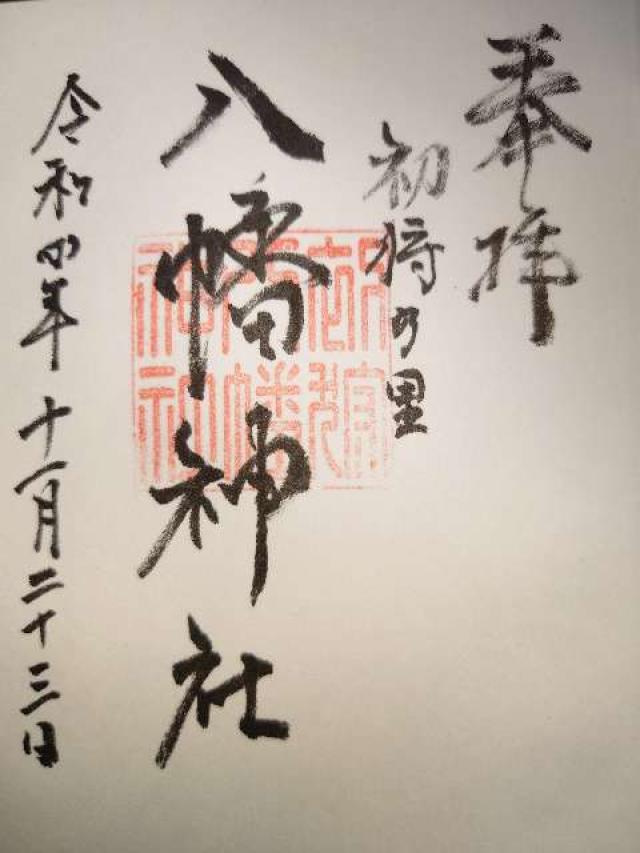 奉拝
初狩の里
八幡神社
令和四年十一月二十三日